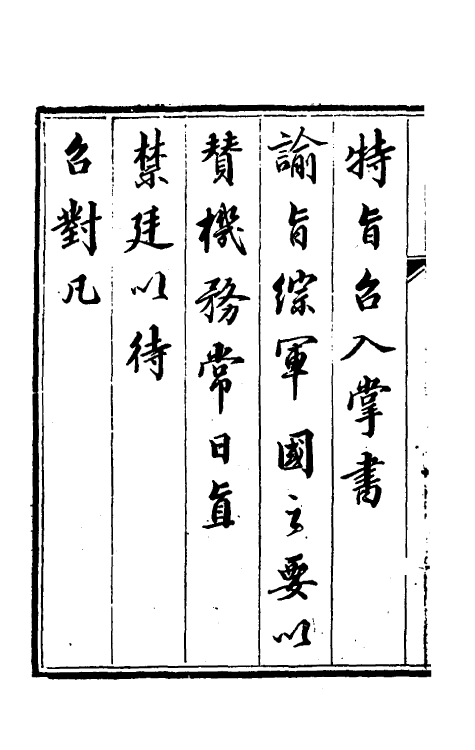 特旨召入掌書
諭旨綜軍國之要以
贊機務常日直
禁廷以待
召對凡